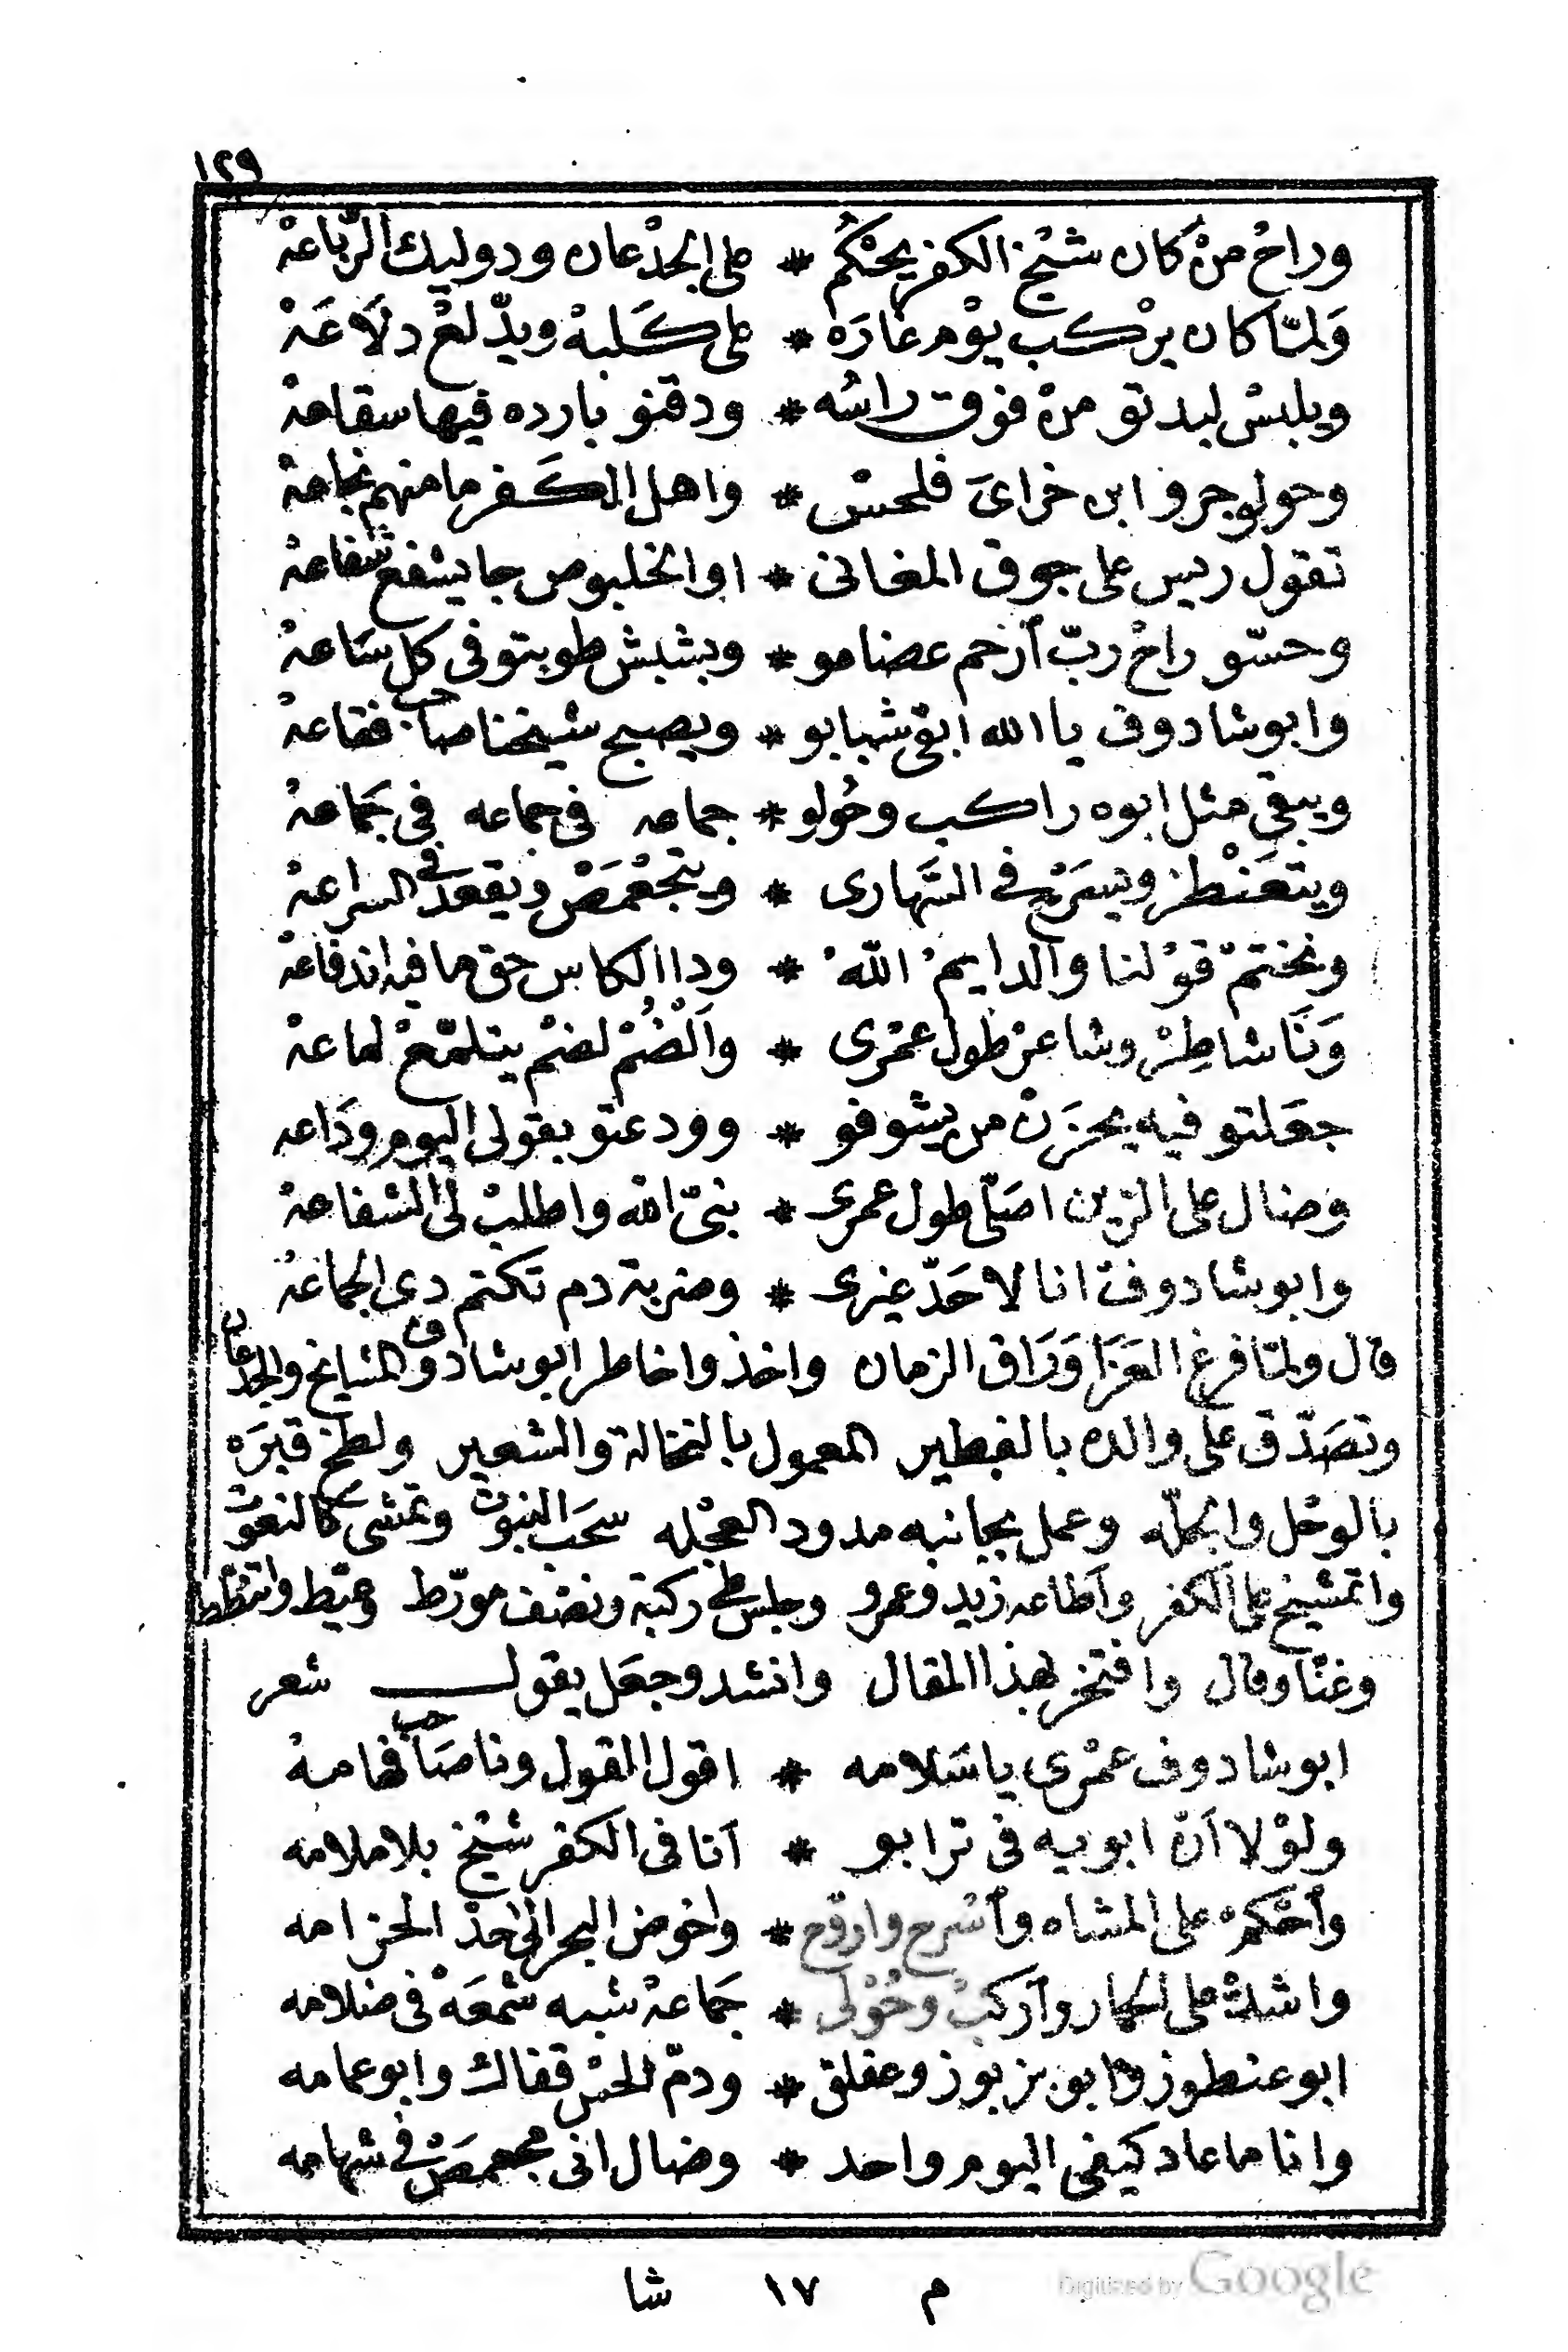 ١٢٩
وراحْ منْ كان شيْخ الكفر يحْكُم * على الجدْعان ودوليك الرّباعهْ
وَلمّا كان يرْكب يوْم غارَه * على كَلبهْ ويدّلعْ دلَاعَهْ
ويلبسْ لبدتو منْ فوق راسُه * ودقنو بارده فيها سقاعهْ
وحولو جرو ابن خراىَ فلحسْ * واهل الكَفر ما منهم نجاعهْ
تقول ريس على جوق المغانى * اوالخلبوص جا يشفعْ شفاعهْ
وحسّو راحْ ربّ آرحم عضامو * وبشبش طوبتو فى كل سَاعهْ
وابو شادوف يا الله ابقى شبابو * ويصبح شيخنا صاحب فقاعهْ
ويبقى مثل ابوه راكب وحُولو * جماعه فى جماعه فى جَماعهْ
ويتعَنْطز ويسرَحْ فى السَّهارى * ويتجعْمَصْ ويقعد فى السراعهْ
ونختمْ قوْلنا والدايمْ اللّهْ * ودا الكاس حق ما فيه اندفاعهْ
وَنَا شاطِرْ وشاعرْ طول عمْرى * وآلضُمْ لضمْ يتلمّعْ لماعهْ
جعَلتو فيه يحزَنْ من يشوفو * وودعتو بقولى اليوم ودَاعه
وضال على الزين اصَلّى طول عمرى * بنىّ الله واطلبْ لى الشفاعهْ
وابو شادوفْ انا لا حَدّ غيرى * وضربة دم تكتم دى الجماعهْ
قال ولمّا فرغ العَزَا وَرَاق الزمان واخذوا خاطر ابو شادوف المشايخ والجدعان
وتصَدّق على والده بالفطير المعمول بالنخالة والشعير ولطخ قبرَه
بالوحْل والجلّه وعمل بجانبه مدود العجْله سحَب النبوت وتمشى كالنعوت
واتمشيخ على الكفر وآطاعه زيد وعمرو وجلس على ركبة ونصْف مورّط وعيّط واتنطّط
وغنّا وقال وافتخر بهذا المقال وانشد وجعَل يقول شعر
ابو شادوف عمْرى يا سَلامه * اقول القول ونا صَاحب فهامهْ
ولوْلا آنّ ابويه فى ترابو * آنا فى الكفر شيْخ بلا ملامه
وآحْكمْ على المشاه وآسْرح واروّح * واخوض البحر الى حدْ الحزامه
واشلشْ على الحمار وآركبْ وحُوْلى * جَماعهْ شبه شمعَهْ فى ضلامه
ابو عنطوز وابو بزبوز وعفلق * ودمّ الحسْ قفاك وابو عمامه
وانا ما عاد كيفى اليوم واحد * وضال انى مجعمَصْ فى شهامه
م ١٧ شا
Digitized by Google